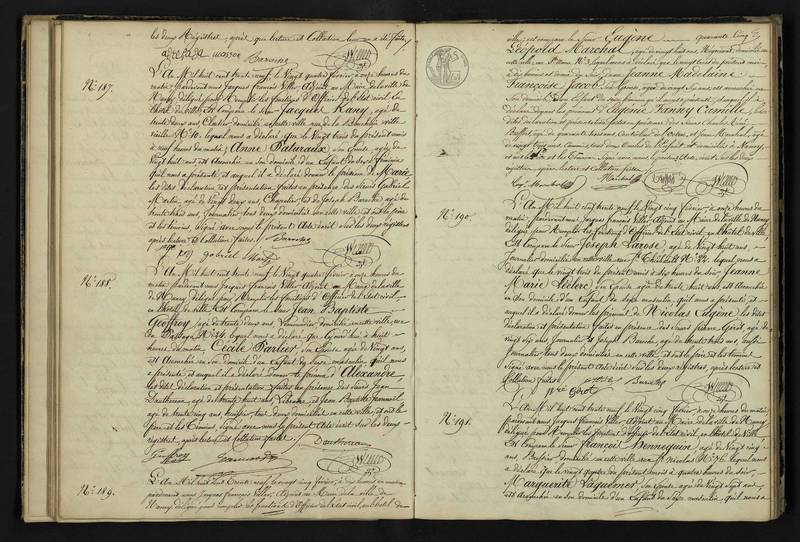 les deux Régistres, après que lecture et Collation leur en a été faite
Nº: 187.
L'An Mil huit cent trente neuf, le Vingt quatre février à onze heures du
matin, pardevant nous Jacques François Villers Adjoint au Maire de la Ville de
Nancy, délégué pour Remplir les fonctions d'Officier de l'Etat civil, En
l'hôtel de Ville, Est Comparu le Sieur Jacques Rany, agé de
trente deux ans, domicilié en cette ville rue de la Boucherie vieille
Ville Nº 10. lequel nous a déclaré que le Vingt trois du présent mois
à neuf heures du matin Anne Paturaux, son Epouse, agée de
Vingt huit ans est Accouchée en son domicile d'un Enfant du Sexe féminin
qu'il nous a présenté et auquel il a déclaré donner le prénom de Marie
les dites déclaration et présentation faites en présence des Sieurs Gabriel
Martin, agé de Vingt deux ans, Charpentier et de Joseph Baroche, agé de
trente huit ans Journalier tous deux domiciliés en cette ville, et ont le père
et les témoins, Signé avec nous le présent Acte écrit sur les deux régistres
après lecture et Collation faites.
gabriel Martin
Nº: 188.
L'An Mil huit cent trente neuf, le Vingt quatre février à onze heures du
matin, pardevant nous Jacques François Villers, Adjoint au Maire de la ville
de Nancy, délégué pour Remplir les fonctions d'Officier de l'Etat civil,
en l'hôtel de Ville, Est Comparu le Sieur Jean Baptiste
Geoffroy, agé de trente deux ans, domicilié en cette ville, rue
du Passage Nº 24. lequel nous a déclaré que Ajourd'hui à huit
heures du matin, Cécile Parlier, son Epouse, agée de Vingt ans,
est Accouchée en son domicile d'un Enfant du Sexe masculin, qu'il nous
a présenté et auquel il a déclaré donner le prénom d'Alexandre
les dites déclaration et présentation faites en présence des Sieurs Jean
agé de trente huit ans et Jean Baptiste
agé de trente cinq ans, tous deux domiciliés en cette ville, et ont le
père et les témoins, Signé avec nous le présent Acte écrit sur les deux
régistres, après lecture et Collation faites.
Nº: 189.
L'An Mil huit cent trente neuf, le vingt cinq février, à dix heures du matin
pardevant nous Jacques françois Villers, Adjoint au Maire de la Ville de
Nancy délégué pour remplir les fonctions d'Officier de l'Etat civil, en l'hôtel de
ville, est comparu le Sieur Eugène quarante cinq
Léopold Marchal, agé de vingt huit ans, domicilié
en cette ville, a déclaré que le vingt trois du présent mois
à dix heures du soir Jeanne Madelaine
Françoise Jacob, Son Epouse, agée de vingt six ans, est accouchée en
Son domicile d'un Enfant du sexe
déclaré donner les prénoms d'Eugénie Fanny Camille, les
dites déclaration et présentation faites en présence des Sieurs Charles
agé de quarante huit ans, et Jean Marchal, agé
Nancy,
et ont le Père et les témoins Signé avec nous le présent Acte, écrit sur les deux
régistres, après lecture et Collation faites
Nº: 190.
L'An Mil huit cent trente neuf, le Vingt cinq février, à onze heures du
matin, pardevant nous Jacques François Villers, Adjoint au Maire de la Ville de Nancy
délégué pour Remplir les fonctions d'Officier de l'Etat civil, en l'hôtel de Ville
Est Comparu le Sieur Joseph Larose, agé de Vingt huit ans,
Journalier domicilié en cette ville, rue Nº 22. lequel nous a
déclaré que le vingt trois du présent mois à dix heures du soir, Jeanne
Marie Leclerc, son Epouse, agée de trente huit ans, est Accouchée
en Son domicile, d'un Enfant du Sexe masculin, qu'il nous a présenté, et
auquel il a déclaré donner les prénoms de Nicolas Eugène, les dites
déclaration et présentation faites en présence des Sieurs Pierre Gérot, agé de
vingt six ans, Journalier et Joseph Baroche, agé de trente huit ans,
Journalier, tous deux domiciliés en cette ville, et ont le père et les témoins
Signé avec nous le présent Acte écrit sur les deux régistres, après lecture et
Collation faites.
Nº: 191.
L'An Mil huit cent trente neuf, le Vingt cinq février, à onze heures du matin,
pardevant nous Jacques François Villers, Adjoint au Maire de la Ville de Nancy,
délégué pour Remplir les fonctions d'Officier de l'Etat civil, en l'hôtel de Ville
Est Comparu le Sieur François Bennequin, agé de Vingt cinq
ans, domicilié en cette ville rue St. Nicolas Nº 76. lequel nous
a déclaré, Que le vingt quatre du présent mois à quatre heures du soir,
Marguerite Laquenet, Son Epouse, agée de Vingt sept ans,
est Accouchée en son domicile d'un Enfant du Sexe masculin, qu'il nous a